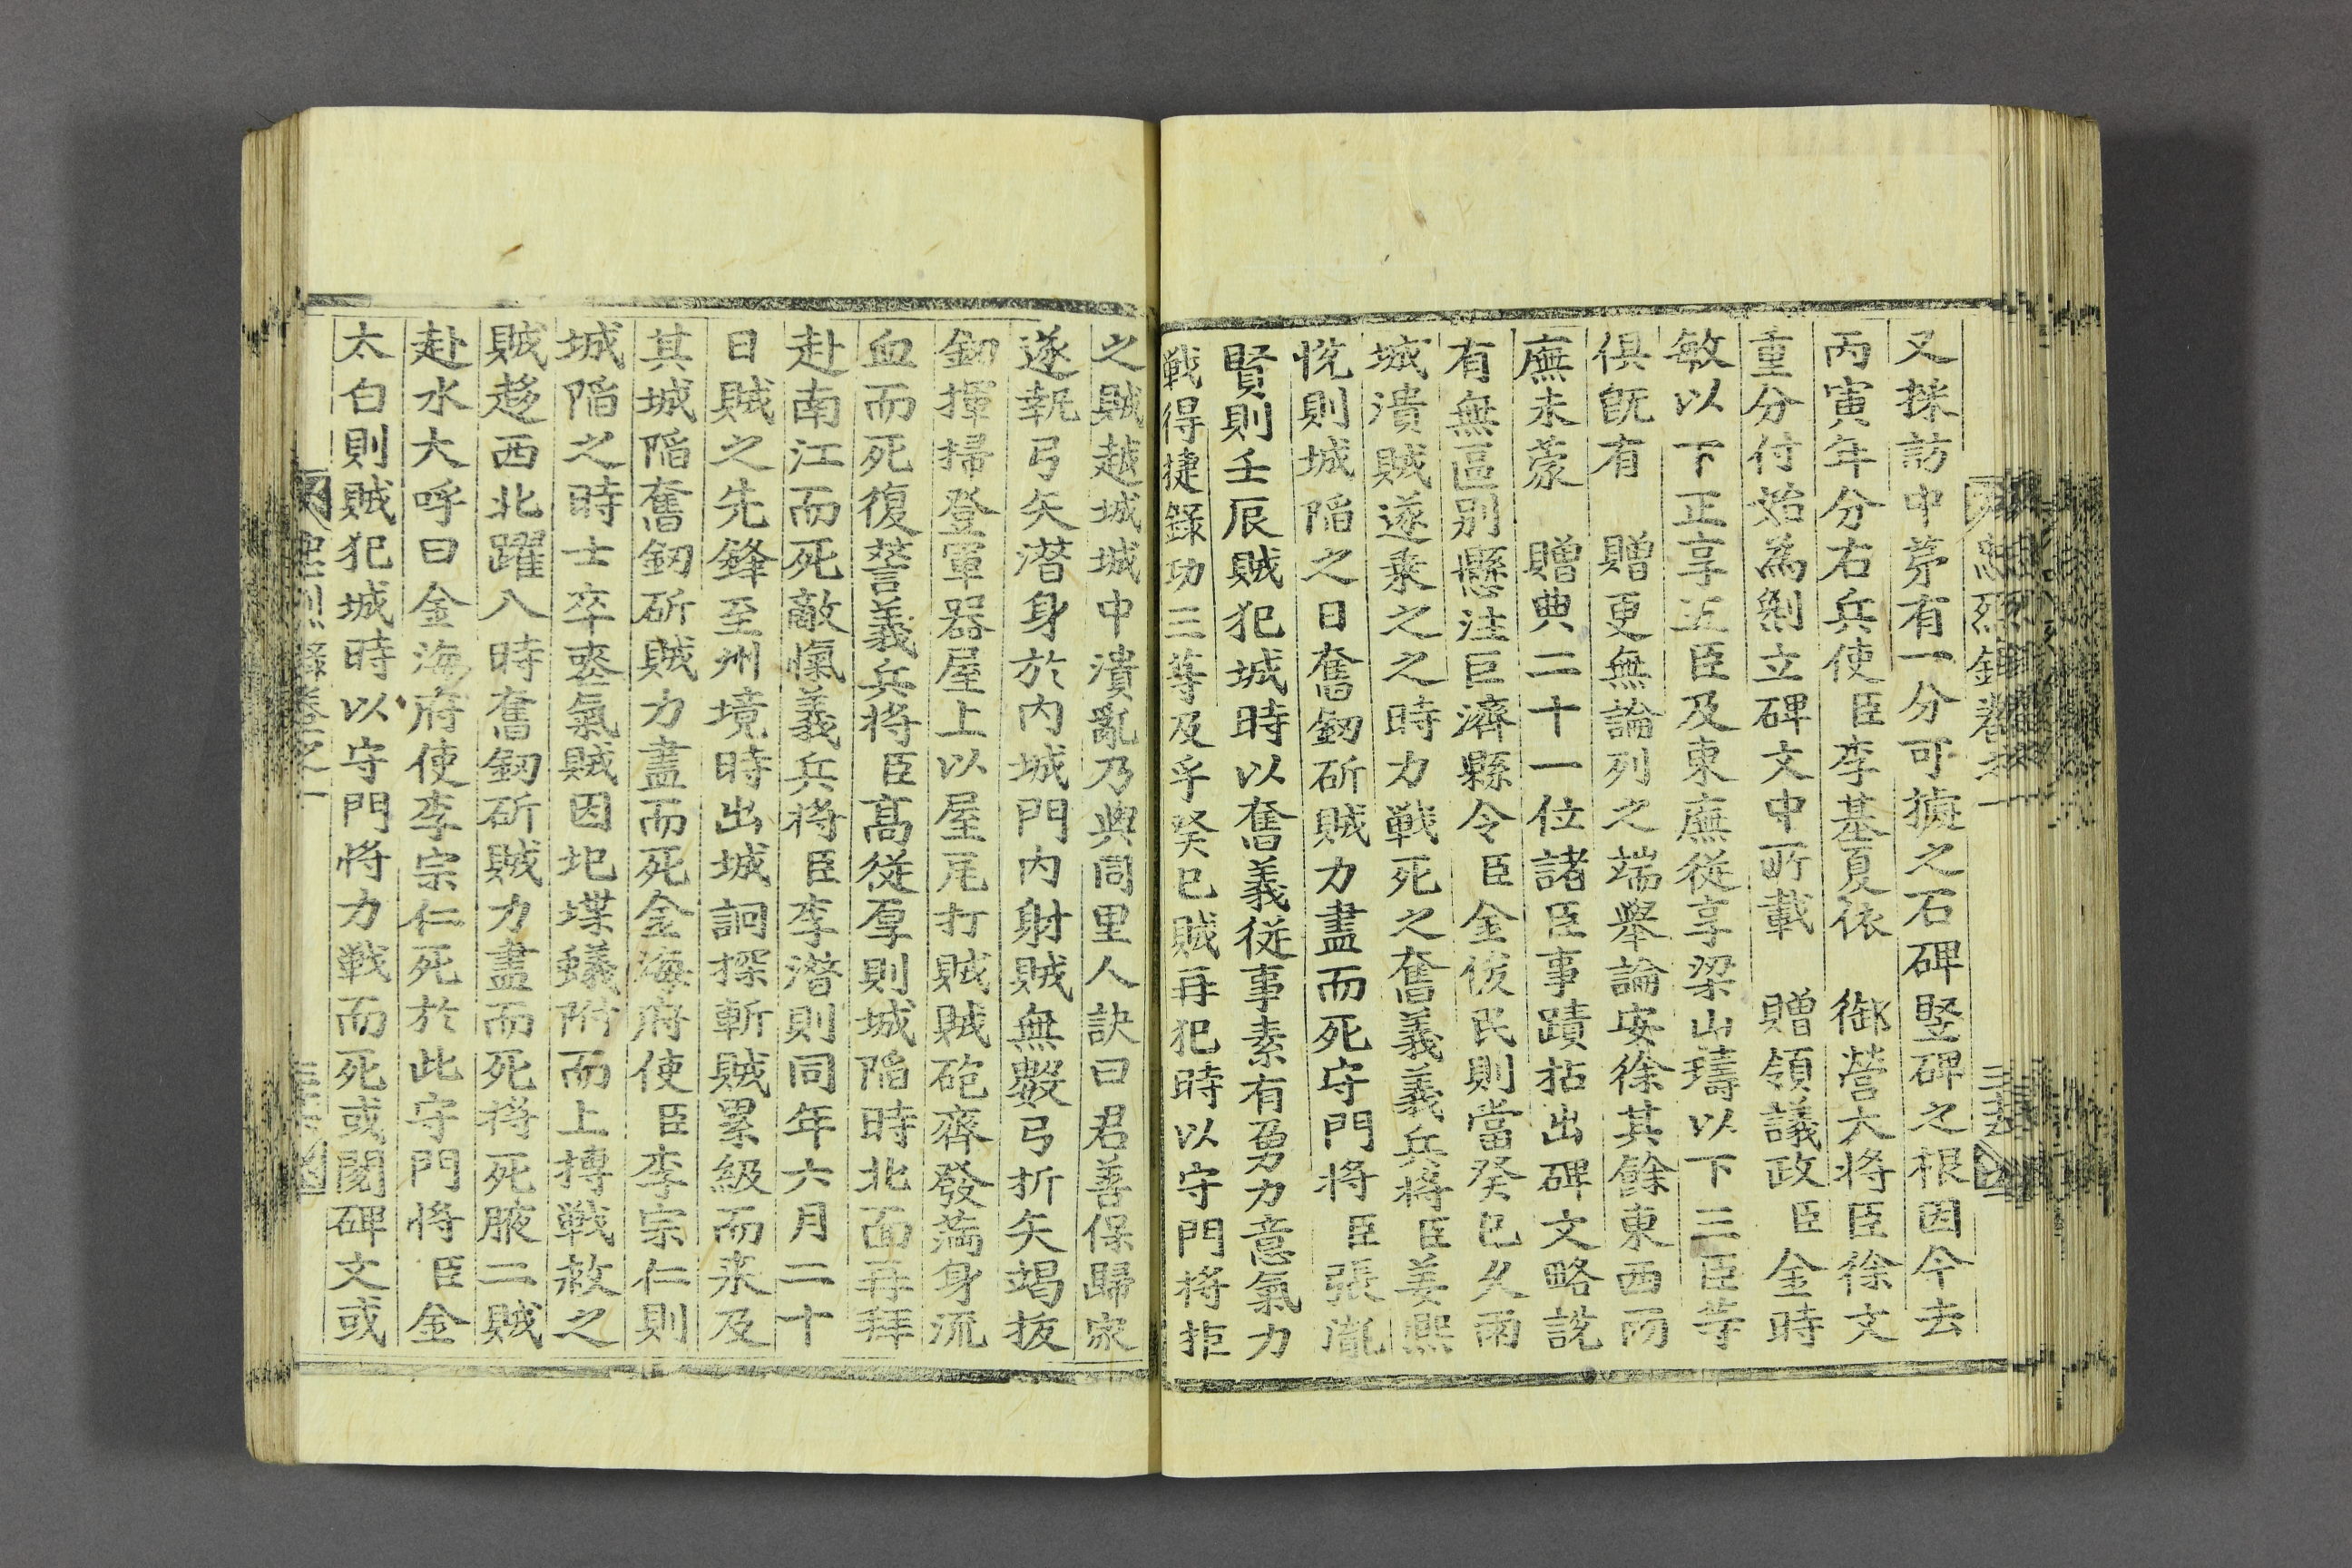 又採訪中第有一分可據之石碑竪碑之根因今去
丙寅年分右兵使臣李基夏依 御營大將臣徐文
重分付始為剏立碑文中所載 贈領議政臣金時
敏以下正享五臣及東廡從享梁山璹以下三臣等
俱旣有 贈更無論列之端擧論安徐其餘東西兩
廡未蒙 贈典二十一位諸臣事蹟拈出碑文略說
有無區別懸注巨濟縣令臣金俊民則當癸巳久雨
城潰賊遂乘之之時力戰死之奮義義兵將臣姜熙
悅則城陷之日奮釰斫賊力盡而死守門將臣張胤
賢則壬辰賊犯城時以奮義從事素有勇力意氣力
戰得捷錄功三等及乎癸巳賊再犯時以守門將拒
之賊越城城中潰亂乃與同里人訣曰君善保歸家
遂執弓矢潛身於內城門內射賊無數弓折矢竭拔
釰揮掃登軍器屋上以屋瓦打賊賊砲齊發滿身流
血而死復讐義兵將臣高從厚則城陷時北面再拜
赴南江而死敵愾義兵將臣李潛則同年六月二十
日賊之先鋒至州境時出城詗探斬賊累級而來及
其城陷奮釰斫賊力盡而死金海府使臣李宗仁則
城陷之時士卒喪氣賊因圯堞蟻附而上搏戰敵之
賊趍西北躍入時奮釰斫賊力盡而死將死腋二賊
赴水大呼曰金海府使李宗仁死於此守門將臣金
太白則賊犯城時以守門將力戰而死或閱碑文或